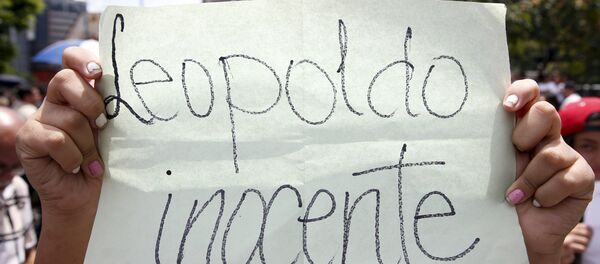 Leopoldo
inocente